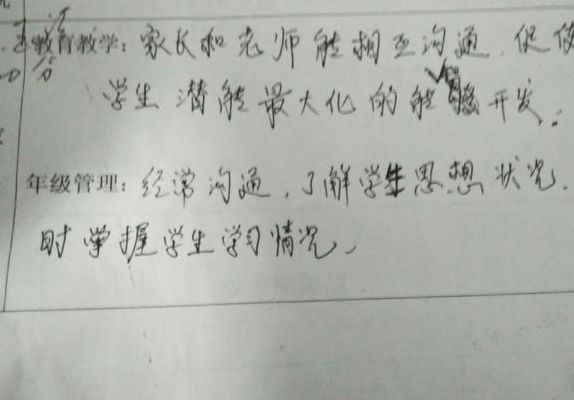 教育教学：家长和老师能相互沟通，促使
学生潜能最大化的能够开发.
年级管理：经常沟通，了解学生思想状况.
时掌握学生学习情况，